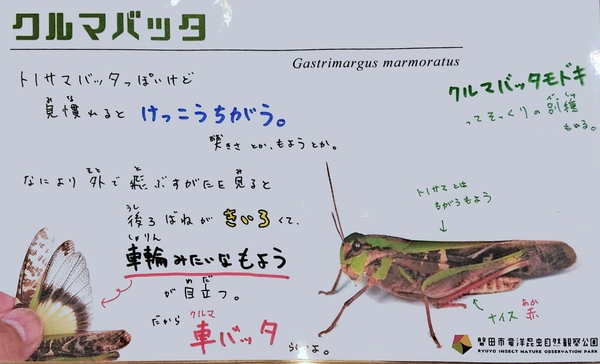 クルマバッタ
Gastrimargus marmoratus
トノサマバッタっぽいけど
見慣れると けっこうちがう。
とか、もようとか。
なにより 外で 飛ぶすがたを見ると
後ろばねが きいろくて、
車輪みたいなもよう
が目立つ。
だから 車バッタ らしいよ。
クルマバッタモドキ
ってそっくりの別種
もいる。
トノサマとは
ちがうもよう
ナイス赤
磐田市竜洋昆虫自然観察公園
RYUYO INSECT NATURE OBSERVATION PARK